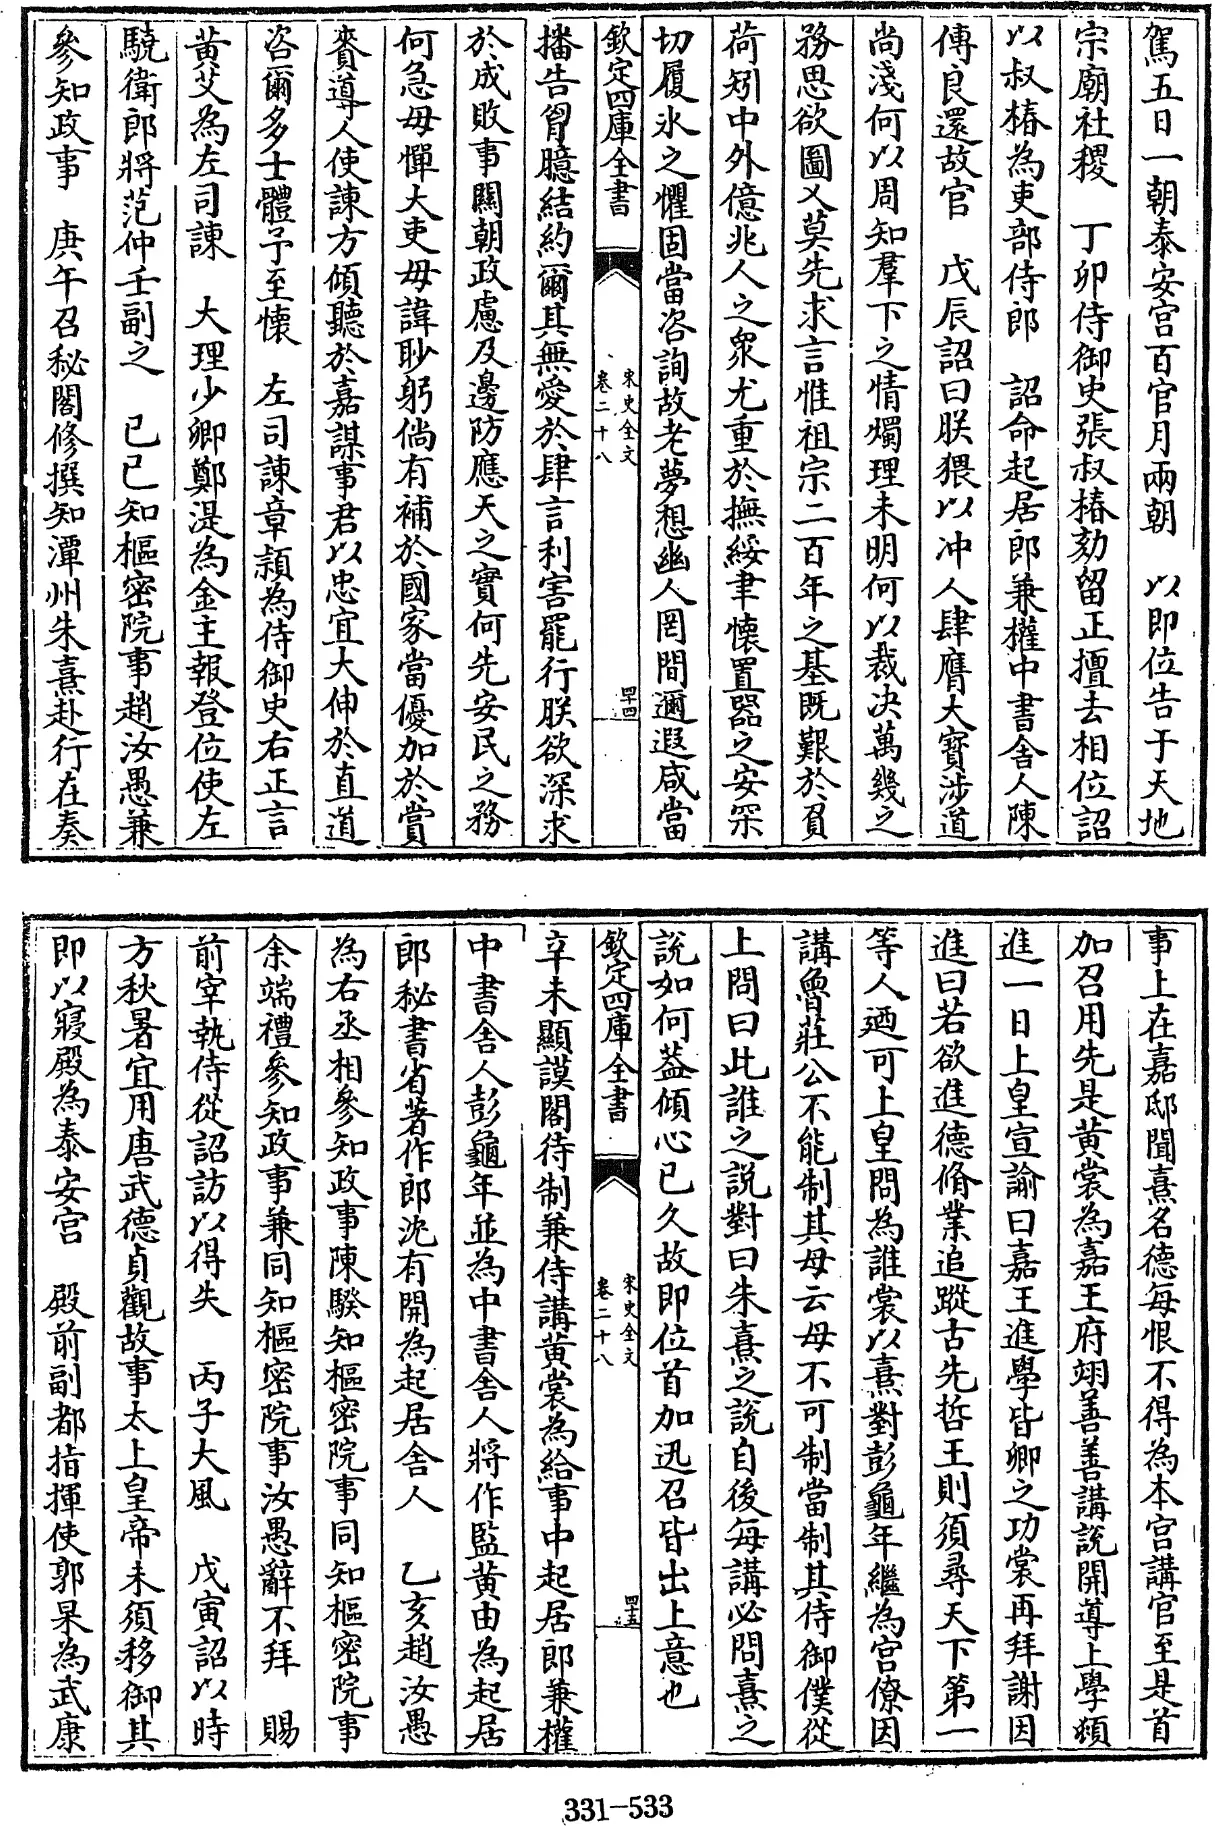 駕五日一朝泰安宮百官月兩朝　以即位告于天地
宗廟社稷　丁卯侍御史張叔椿劾留正擅去相位詔
以叔椿為吏部侍郎　詔命起居郎兼權中書舍人陳
傅良還故官　戊辰詔曰朕猥以冲人肆膺大寶涉道
尚淺何以周知羣下之情燭理未明何以裁決萬幾之
務思欲圖乂莫先求言惟祖宗二百年之基既艱於負
荷矧中外億兆人之衆尤重於撫綏聿懷置器之安罙
切履氷之懼固當咨詢故老夢想幽人罔間邇遐咸當
欽定四庫全書
宋史全文
卷二十八
四十四
播告胷臆結約爾其無愛於肆言利害罷行朕欲深求
於成敗事關朝政慮及邊防應天之實何先安民之務
何急毋憚大吏毋諱眇躬倘有補於國家當優加於賞
賚導人使諫方傾聽於嘉謀事君以忠宜大伸於直道
咨爾多士體予至懷　左司諫章頴為侍御史右正言
黄艾為左司諫　大理少卿鄭湜為金主報登位使左
驍衛郎將范仲壬副之　己巳知樞密院事趙汝愚兼
參知政事　庚午召秘閣修撰知潭州朱熹赴行在奏
事上在嘉邸聞熹名德每恨不得為本宮講官至是首
加召用先是黄裳為嘉王府翊善善講說開導上學頗
進一日上皇宣諭曰嘉王進學皆卿之功裳再拜謝因
進曰若欲進德脩業追蹤古先哲王則須尋天下第一
等人廼可上皇問為誰裳以熹對彭龜年繼為宮僚因
講魯莊公不能制其母云母不可制當制其侍御僕從
上問曰此誰之說對曰朱熹之說自後每講必問熹之
說如何葢傾心已久故即位首加迅召皆出上意也
欽定四庫全書
宋史全文
卷二十八
四十五
辛未顯謨閣待制兼侍講黄裳為給事中起居郎兼權
中書舍人彭龜年並為中書舍人將作監黄由為起居
郎秘書省著作郎沈有開為起居舍人　乙亥趙汝愚
為右丞相參知政事陳騤知樞密院事同知樞密院事
余端禮參知政事兼同知樞密院事汝愚辭不拜　賜
前宰執侍從詔訪以得失　丙子大風　戊寅詔以時
方秋暑宜用唐武德貞觀故事太上皇帝未須移御其
即以寢殿為泰安宮　殿前副都指揮使郭杲為武康
331-533